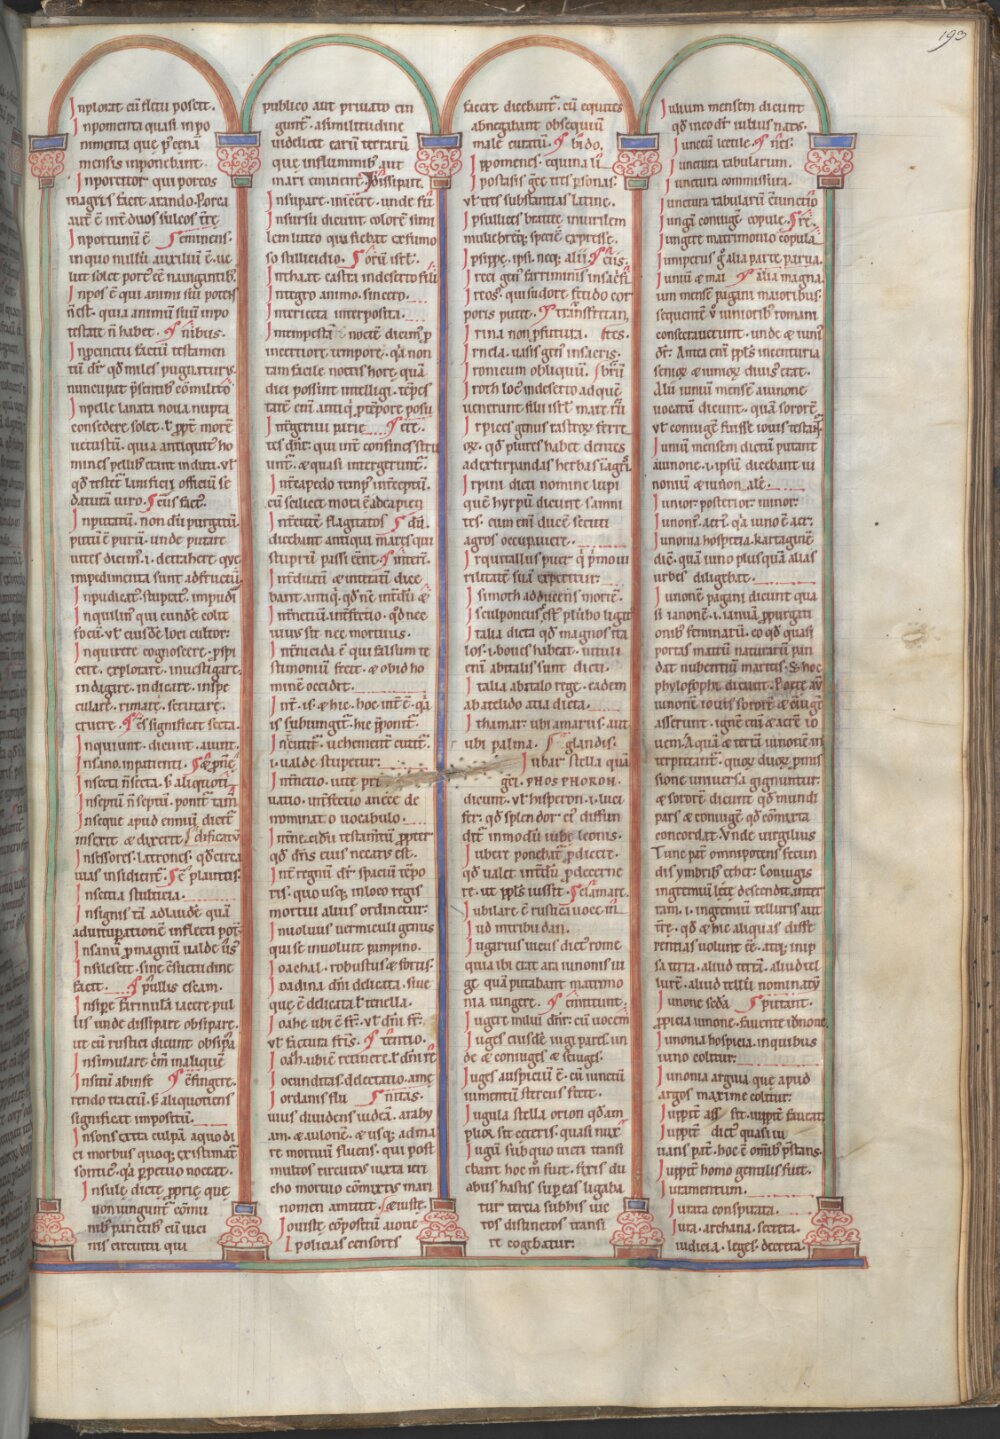 193
Inplorat cū fletu poscit.
Inpomenta quasi inpo
nimenta que p᷑ cenā
mensis inponebant.
Inporcitor qui porcos
magris facit arando. Porca
aut̄ ē int̄ duos sulcos t̄re
Inportunū ē eminens.
in quo nullū auxiliū ē. ue
lut solet port᷑ ē navigantib;
Inpos ē qui animi sui potens
n̄ est. qua animū suū inpo
testate n̄ habet. nibus.
Inprocinctu factū testamen
tū dr̄ qd̄ miles pugnaturus
nuncupat p̄sentib; cōmilito
Inpelle lanata noua nupta
considere solet. ł ppt̄ morē
uetustū. quia antiquit᷑ ho
mines pellib; erant induti. vł
qd̄ testet᷑ lanificii officiū se
daturā uiro. eius fact᷑.
Inputatū. non dū purgatū.
putū ē purū. unde putare
uites dicim᷑. i. detrahere que
impedimenta sunt
Inpudicat᷑. stuprat᷑. impudi
Inquilin᷑ qui eundē colit
focū. vł eiusdē loci cultor:
Inquirere cognoscere. pspi
cere. explorare. inuestigare.
indagare. indicare. inspe
culare. rimare. scrutare.
eruere. ēs significat secta.
Inquiunt. dicunt. aiunt.
Insano. inpatienti.
Insecta n̄ secta. ł aliquoti
Inseptū n̄ septū. ponit᷑ tam̄
Inseque apud enniū. dictū
inserit & dixerit. dificatū
Insessores. latrones. qd̄ circa
uias insideant. ē plautus.
Insectia stultitia.
Insignis tā ad laudē quā
ad uituperationē inflecti pot᷑.
Insanū p magnū ualde us᷑
Insilescit. sine cōsuetudine
facit. pullis escam.
Insipere farinulā iacere pul
lis unde dissipare obsipare.
ut cū rustici dicunt obsipa
Insimulare crim̄ in aliquē
Institu abinfe ēfingere.
rendo tractū. ł aliquotiens
significat impositū.
Insons extra culpā. a quo di
ci morbus quoq; existimat᷑
sontic᷑. qa ppetuo noceat.
Insule dicte pprie que
non iungunt᷑ cōmu
nib; parietib; cū uici
nis circuitu qui
publico aut priuato cin
gunt᷑. a similitudine
uidelicet earū terrarū
que in fluminib; aut
mari eminent. dissipat᷑.
Insipare. inicere. unde fit
Insuasu dicunt colorē simi
lem luteo qui fiebat ex fumo
so stillicidio. orū isrł.
Inthare castra in deserto filii
Integro animo. sincero.
Interiecta interposita.
Intempesta noctē dicim᷑ p
incertiore tempore. qa non
tam facile noctis hore quā
diei possint intelligi. tēpes
tatē eni antiqi ptēpore posu
Intergerini parietes
tes dnt᷑. qui int᷑ confines stru
unt᷑. & quasi intergerunt᷑.
Intercapedo temp᷑ interceptū.
cū scilicet mora ē ad capien
Intercutē flagitatos dū.
dicebant antiqui mares qui
stuprū passi eēnt. interit.
Interduatū & interatū dice
bant antiqi qd̄ ne interdū &
Internectiū. interfectio. qd̄ nec
uiuus sit nec mortuus.
Internicida ē qui falsum te
stimoniū fecit. & ob id ho
minē occidit.
Int̄. is. & hic. hoc int̄ ē. qa
is subiungit᷑. hic pponit᷑.
Intēnit᷑. uehementer
i. ualde stupetur:
Internetio. uite pri
uatio. interfectio a nece de
nominato uocabulo.
Internecidiui testamtū. ppter
qd̄ dn̄s eius necatus est.
Interregnū dr̄ spaciū tēpo
ris. quo usq; in loco regis
mortui alius ordinetur:
Inuoluus uermiculi genus
qui se inuoluit pampino.
Ioachal. robustus & fortis.
Ioadina dn̄i delicata. siue
que ē delicata ł tenella.
Ioahe ubi ē fr̄. vł dn̄i fr̄.
vł factura fr̄is. tentio.
Ioah. ubi ē retinere. ł dn̄i re
Iocunditas. delectatio. ame
Iordanis flu nitas.
uius diuidens iudeā. araby
am. & aulonē. & usq; ad ma
re mortuū fluens. qui post
multos circuitus iuxta ieri
cho mortuo cōmixtus mari
nomen amittit. euiste.
Iouiste cōpositū a ioue
Ipolicias censores
facere dicebant᷑. cū equites
abnegabant obsequiū
male curatū. bido.
Ippomenes. equina ui.
Ipostasis grece tres psonas.
vł tres substantias latine.
Ipsullices bratee in uirilem
muliebreq; specie expresse.
Ipsippe. ipsi. neq; alii. cris.
Ireci gen᷑ farciminis in sacri
Ircos. qui sudore fetido cor
poris putet. transferetan.
Irina non psutura. stes.
Irnela. uasis gen᷑ in sacris.
Ironicum obliquum. brū
Iroth loc᷑ indeserto ad quē
uenerunt filii isrł. mare ru
Irpices genus rastrox ferre
ox. qd̄ plures habet dentes
ad extirpandas herbas in agris.
Irpini dicti nomine lupi
quē hyrpū dicunt samni
tes. eum eni ducē secuti
agros occupauere.
Irquitallus puer qi pmo ui
rilitatē suā experitur:
Isimoth adducens mortē.
Isculponeus ēst plūbo ligat᷑
Italia dicta qd̄ magnos ita
los. i. boues habeat. uituli
eni ab italis sunt dicti.
Italia ab italo rege. eadem
ab atteludo atia dicta.
Ithamar. ubi amarus. aut
ubi palma. glandis.
Iubar stella quā
greci. PHOSPHORON.
dicunt. vł hisperon. i. luci
fer. qd̄ splendor ei᷑ diffun
dit᷑ in modū iube leonis.
Iubere ponebat᷑ p dicere.
qd̄ ualet interdū p decerne
re. ut ppłs iussit. clamare.
Iubilare ē rustica uoce in
Iud intribudari.
Iugarius uicus dict᷑ rome
quia ibi erat ara iunonis iu
ge quā putabant matrimo
nia iungere. emittunt.
Iugere milui dnr̄. cū uocem
Iuges eiusdē iugi pares. un
de & coniuges & seiuges.
Iuges auspiciū ē. cū iunctū
iumentū stercus fecit.
Iugula stella orion qd̄ am
plior sit ceteris. quasi nux
Iugū sub quo uicti transi
ebant hoc m̄ fuit. fixis du
abus hastis sup eas ligaba
tur tercia sub his uic
tos distinctos transi
re cogebatur:
Iulium mensem dicunt
qd̄ in eo dr̄ iulius nat᷑.
Iunctū uetile. nes:
Iunctura tabularum.
Iunctura commissura.
Iunctura tabularū cōiunctio
Iungi coniuge copule. re.
Iungere matrimonio copula
Iuniperus qa alia parte parua.
Iuniū & mai alia magna.
um mensē pagani maioribus.
sequentē u iunioribus romani
consecrauerunt. unde & iuni᷑
dr̄. Antea eni ppłs in centuria
seniox & iuniox diuisus erat.
Alii iuniū mensē a iunone
uocatū dicunt. quā sororē
vł coniugē fuisse iouis testant᷑
Iuniū mensem dictū putant
a iunone. i. ipsū dicebant iu
noniū & iunonale.
Iunior. posterior. minor.
Iunon̄. aer. qa iuno ē aer.
Iunonia hospicia. kartaginē
dic. quā iuno plus quā alias
urbes dilige bat.
Iunonē pagani dicunt qua
si ianonē. i. ianuā p purgati
onib; feminarū. eo qd̄ quasi
portas matrū natorū pan
dat nubentiū maritis. & hoc
phylosophi dicunt. Poete au
iunonē iouis sororē & cōiuge
asserunt. ignē eni & aerē io
uem. Aquā & terrā iunonē in
terpretant᷑. quox duox pmis
sione uniuersa gignuntur.
& sororē dicunt qd̄ mundi
pars & coniuge qd̄ cōmixta
concordat. Vnde uirgilius
Tunc pat᷑ omnipotens fecun
dis ymbrib; ether. Coniugis
in gremiū lete descendit. inter
tam. i. in gremiū telluris aut
tr̄e. qd̄ & hic aliquas diffe
rentias uolunt ēē. atq; in ip
sa terra. aliud terrā. aliud tel
lurē. aliud tellū nominat᷑
Iunone seda putant.
ppicia iunone. fauente ibnone.
Iunonia hospicia. in quibus
iuno colitur:
Iunonia arguia que apud
argos maxime colitur:
Iuppit᷑ ass sit. iuppit᷑ faueat.
Iuppit᷑ dict᷑ quasi iu
uans pat᷑. hoc ē omib; pstans.
Iuppit᷑ homo gentilis fuit.
Iuramentum.
Iurata conspirata.
Iura. archana. secreta.
iudicia. leges. decreta.